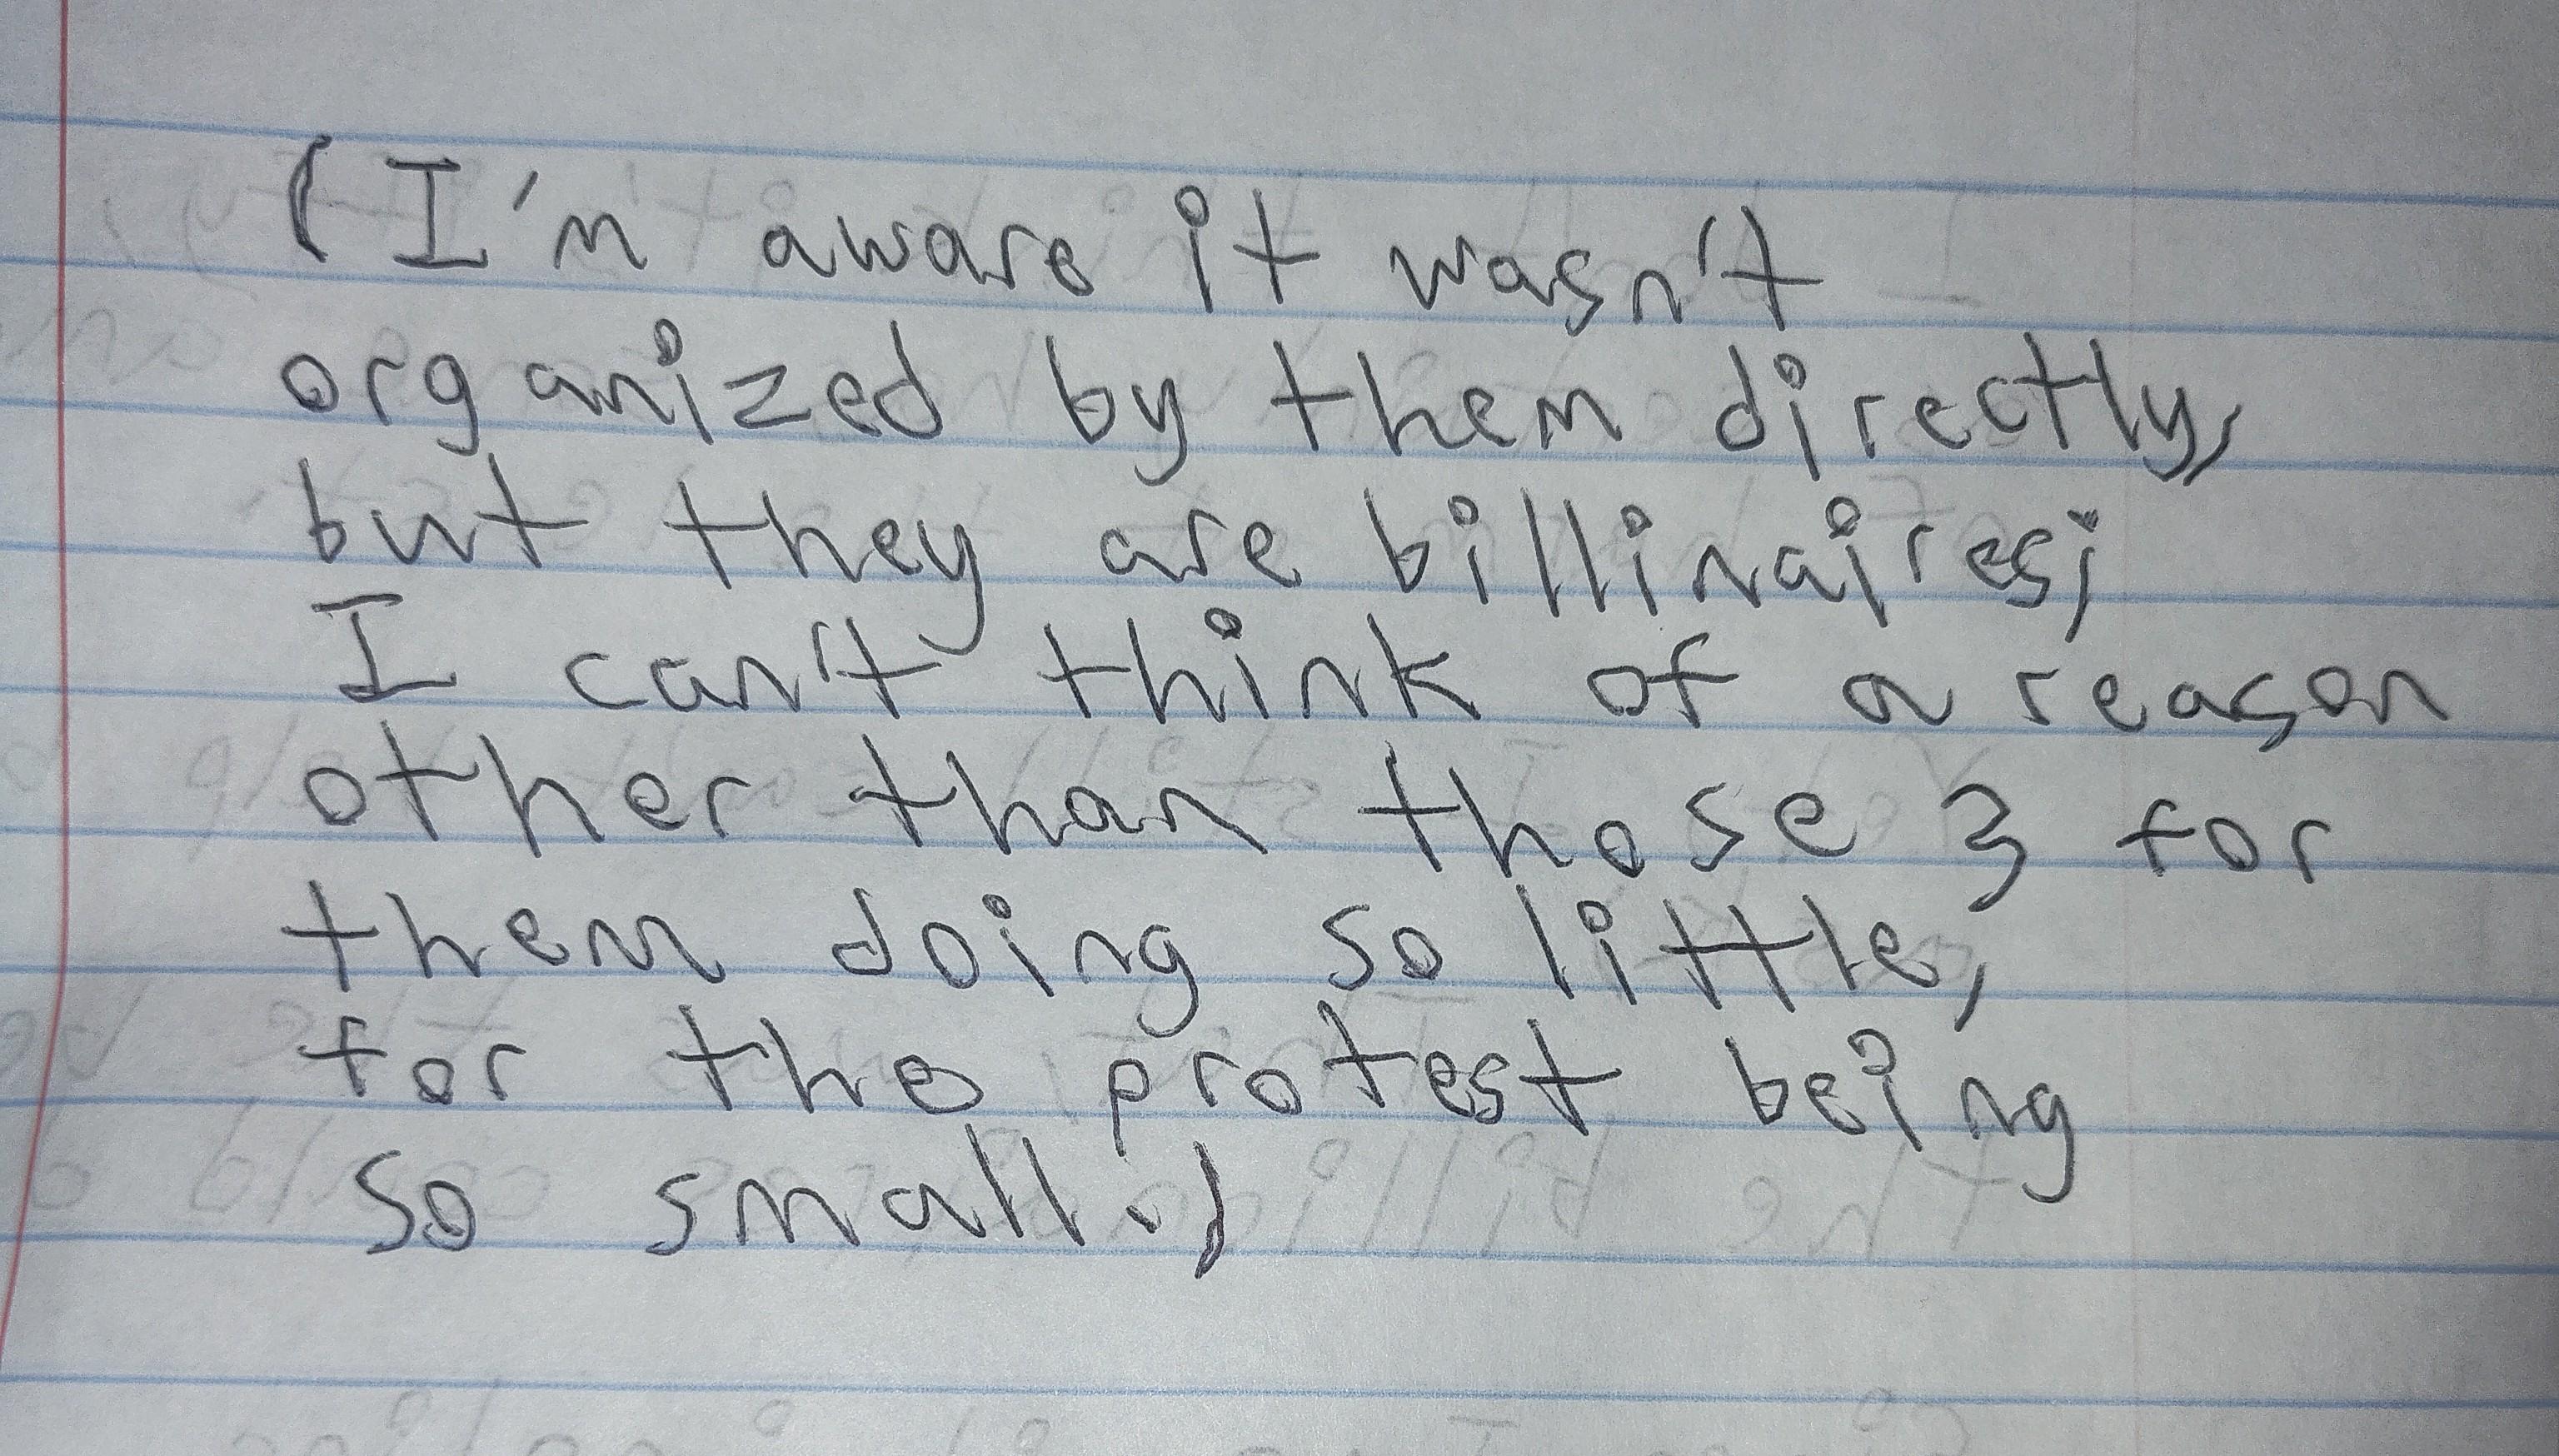 (I'm aware it wasn't
organized by them directly,
but they are billinaires;
I can't think of a reason
other than those 3 for
them doing so little,
for the protest being
so small.)